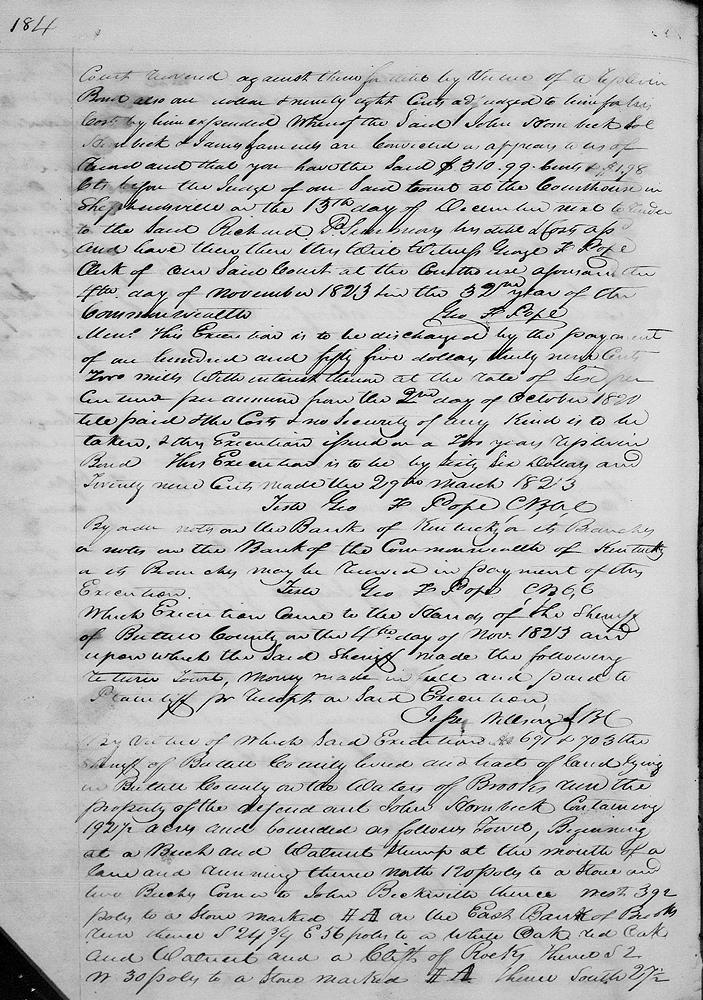 184
Court recovered against them for debt by virtue of a replevin
Bond also one dollar & ninety eight Cents adjudged to him for his
Costs by him expended Whereof the Said John Hornbeck Sol
Hornbeck & are Convicted as appears to us of
record and that you have the Said $310.99 Cents & $1.98
Cts before the Judge of our Said Court at the Courthouse in
Shepherdsville on the 15th day of December next to render
to the Said Richard his debt & Costs afsd
And have then there this Writ Witness George F Pope
Clerk of our Said Court at the Courthouse aforesaid the
4th day of November 1823 & in the 32nd year of the
Commonwealth Geo F Pope
Mem. This Execution is to be discharged by the payment
of one hundred and fifty five dollars ninety nine Cents
Two mills With interest thereon at the rate of Six per
Centum per annum from the 2nd day of October 1820
till paid & the Costs & no Security of any Kind is to be
taken, & this Execution issued on a Two years replevin
Bond This Execution is to be by Sixty Six Dollars and
Twenty nine Cents made the 29th March 1823
Teste Geo F Pope CBCC
notes on the Bank of Kentucky or its Branches
or notes on the Bank of the Commonwealth of Kentucky
or its Branches may be received in payment of this
Execution. Teste Geo F Pope CBCC
Which Execution Came to the Hands of the Sheriff
of Bullitt County on the 4th day of Nov. 1823 and
upon which the Said Sheriff made the following
return Towit, Money made in full and paid to
Plaintiff pr receipt on Said Execution,
Wilson S B C
By Virtue of Which Said Executions No 691 & 703 the
Sheriff of Bullitt County levied on a tract of land lying
in Bullitt County on the Waters of Brooks run the
property of the defendant John Hornbeck Containing
192½ acres and bounded as follows Towit, Beginning
at a Beech and Walnut Stump at the mouth of a
lane and running thence North 120 poles to a Stone and
two Beeches Corner to John Beckwith thence West 392
poles to a Stone marked H A on the East Bank of Brooks
run thence S 24¾ E 56 poles to a White Oak red Oak
and Walnut and a Clift of Rocks Thence S 2
W 30 poles to a Stone marked H A thence South 27½